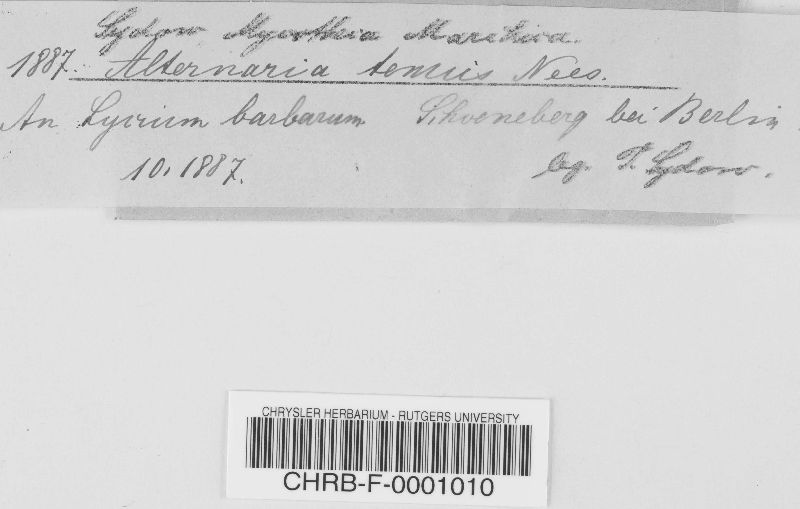 Sydow Mycotheca Marchica.
1887. Alternaria tenuis Nees.
An Lycium barbarum Schoeneberg bei Berlin.
10. 1887. leg. P. Sydow.
CHRYSLER HERBARIUM - RUTGERS UNIVERSITY
CHRB-F-0001010